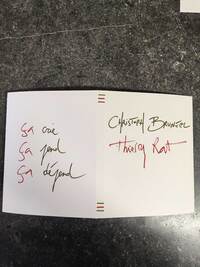 ça crie
ça pend
ça dépend
Christoph Bruneel
Thierry Rat